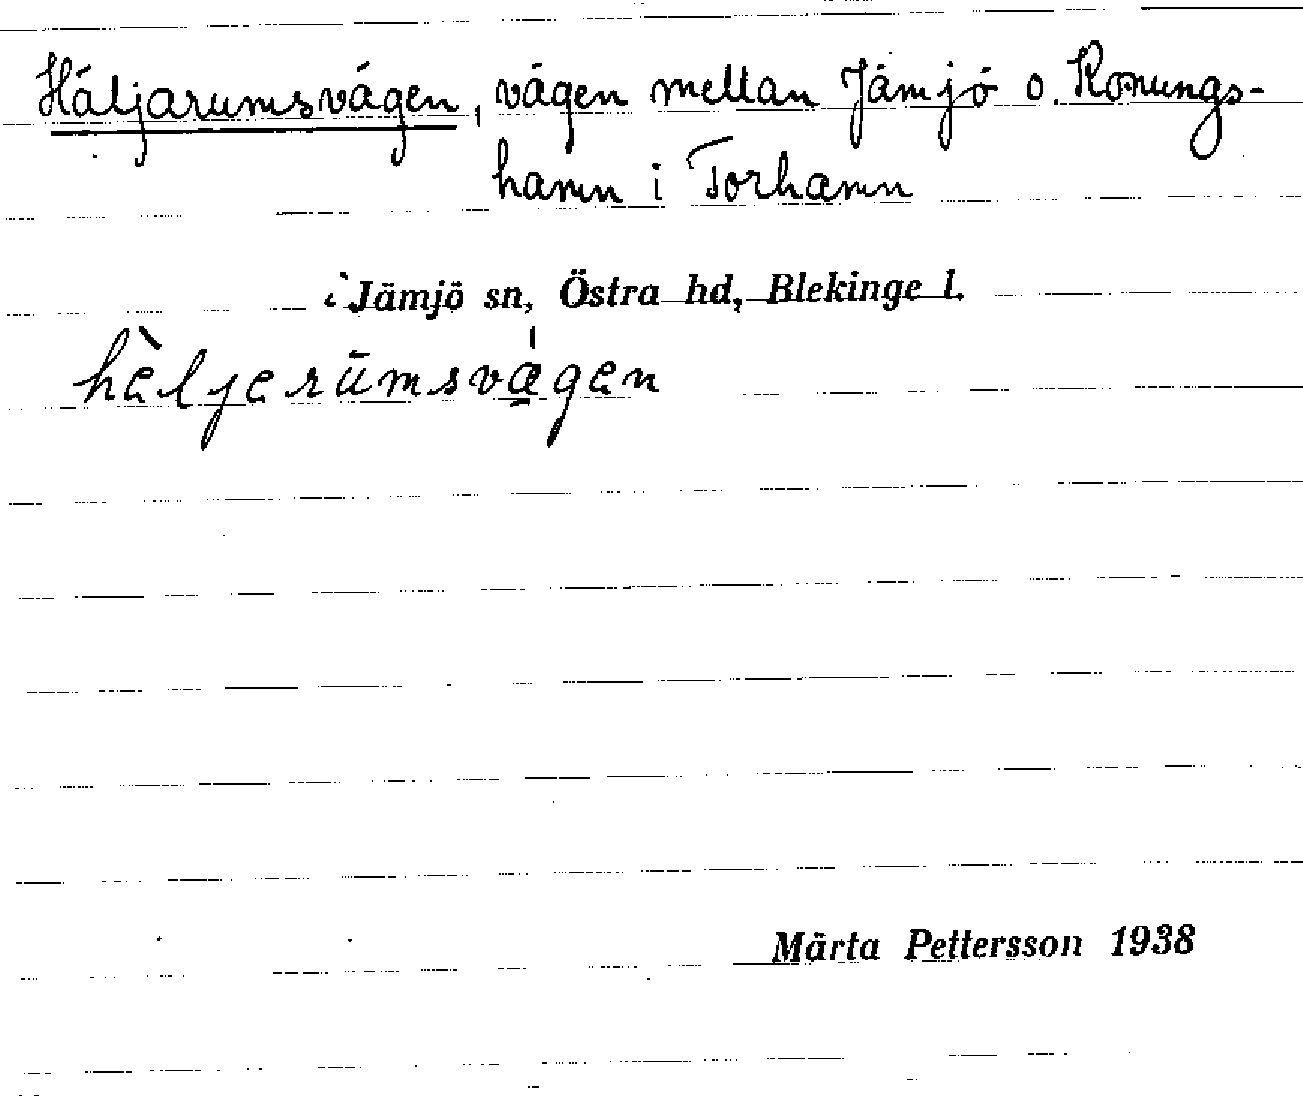 Häljarumsvägen, vägen mellan Jämjö o. Konungs-
hamn i Torhamn
i Jämjö sn, Östra hd, Blekinge l.
hèljerūmsvä́gen
Märta Pettersson 1938